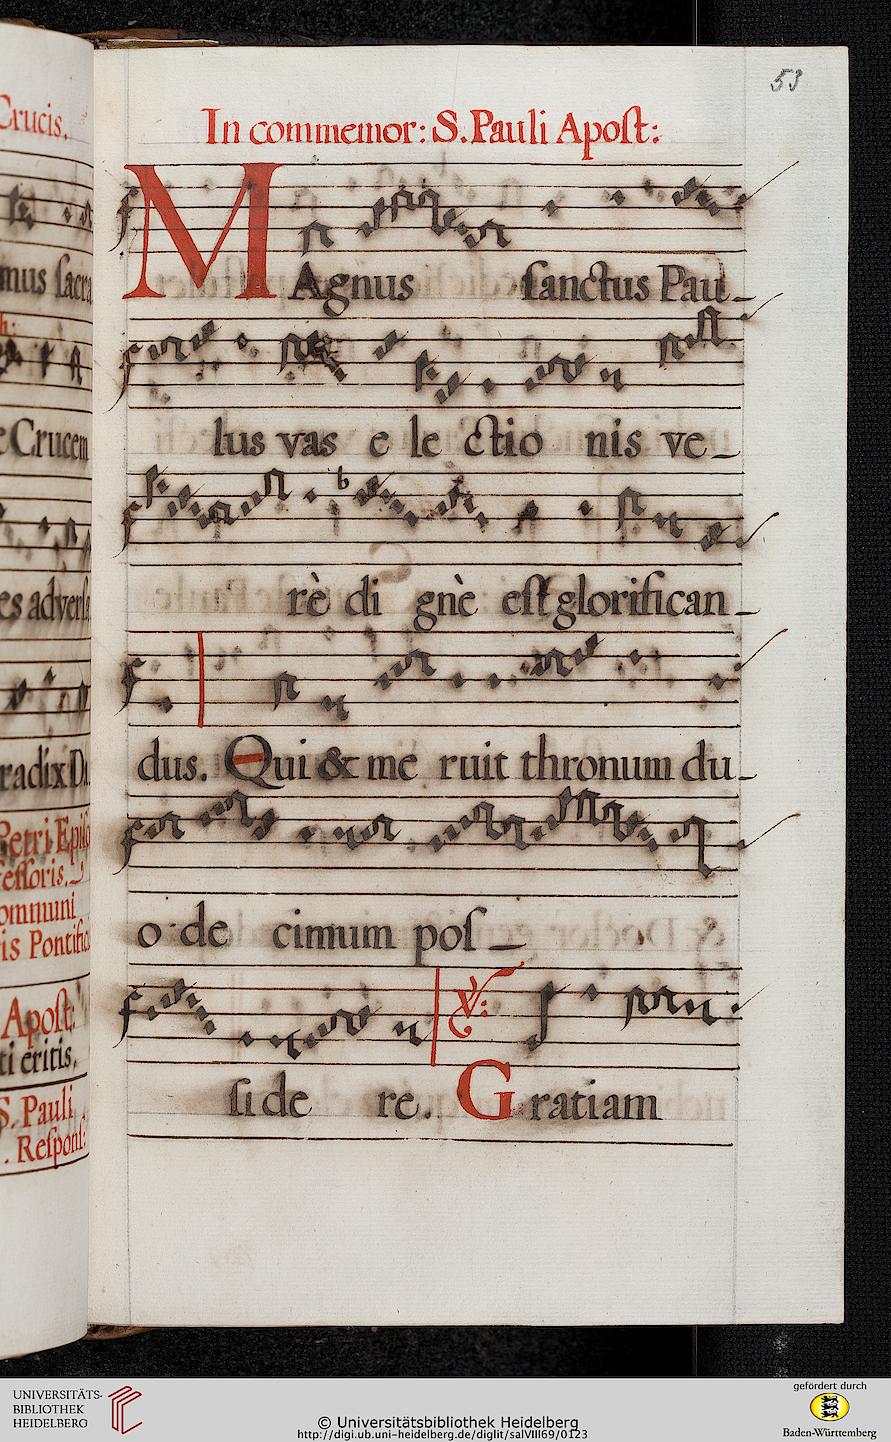 Crucis.
mus sacra
Crucem
es adversa
radix Da
Petri Episc
fessoris.
ommuni
is Pontific
Apost:
ti eritis.
S. Pauli
. Respons:
53
In commemor: S. Pauli Apost:
MAgnus sanctus Pau_
lus vas e le ctio nis ve_
rè di gnè est glorifican_
dus. Qui & me ruit thronum du_
o de cimum pos_
si de re. ℣: Gratiam
UNIVERSITÄTS-
BIBLIOTHEK
HEIDELBERG
© Universitätsbibliothek Heidelberg
http://digi.ub.uni-heidelberg.de/diglit/salVIII69/0123
gefördert durch
Baden-Württemberg